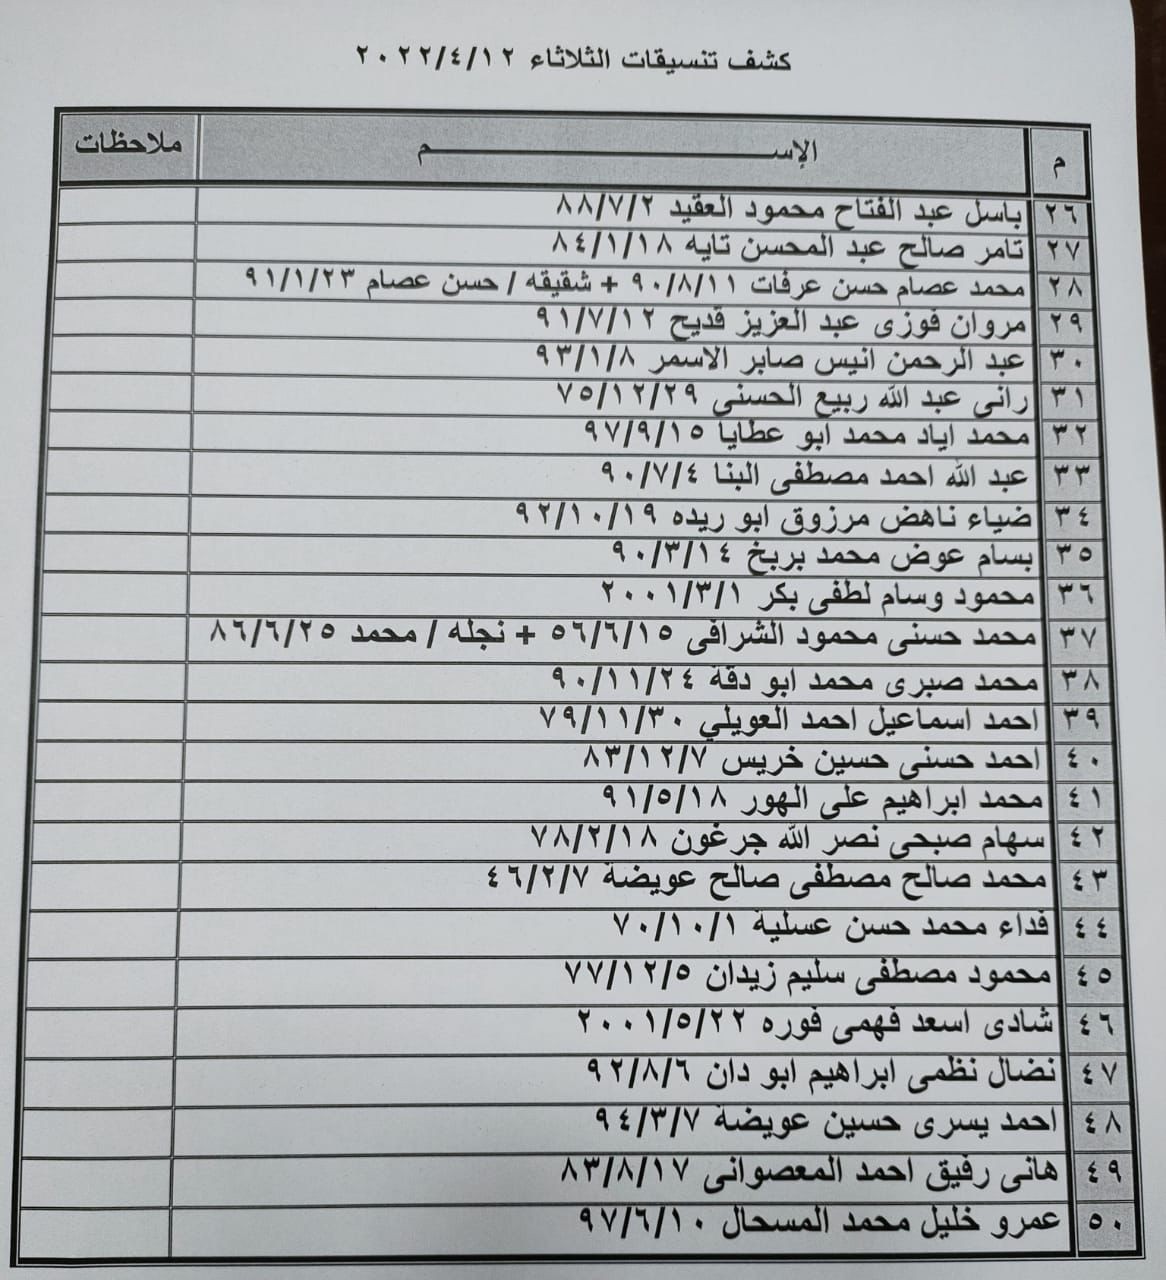 كشف تنسيقات الثلاثاء ٢٠٢٢/٤/١٢
م الإســــــم ملاحظات
٢٦ باسل عبد الفتاح محمود العقيد ٨٨/٧/٢
٢٧ تامر صالح عبد المحسن تايه ٨٤/١/١٨
٢٨ محمد عصام حسن عرفات ٩٠/٨/١١ + شقيقه / حسن عصام ٩١/١/٢٣
٢٩ مروان فوزى عبد العزيز قديح ٩١/٧/١٢
٣٠ عبد الرحمن انيس صابر الاسمر ٩٣/١/٨
٣١ رانى عبد الله ربيع الحسنى ٧٥/١٢/٢٩
٣٢ محمد اياد محمد ابو عطايا ٩٧/٩/١٥
٣٣ عبد الله احمد مصطفى البنا ٩٠/٧/٤
٣٤ ضياء ناهض مرزوق ابو ريده ٩٢/١٠/١٩
٣٥ بسام عوض محمد بربخ ٩٠/٣/١٤
٣٦ محمود وسام لطفى بكر ٢٠٠١/٣/١
٣٧ محمد حسنى محمود الشرافى ٥٦/٦/١٥ + نجله / محمد ٨٦/٦/٢٥
٣٨ محمد صبرى محمد ابو دقة ٩٠/١١/٢٤
٣٩ احمد اسماعيل احمد العويلي ٧٩/١١/٣٠
٤٠ احمد حسنى حسين خريس ٨٣/١٢/٧
٤١ محمد ابراهيم على الهور ٩١/٥/١٨
٤٢ سهام صبحى نصر الله جرغون ٧٨/٢/١٨
٤٣ محمد صالح مصطفى صالح عويضة ٤٦/٢/٧
٤٤ فداء محمد حسن عسلية ٧٠/١٠/١
٤٥ محمود مصطفى سليم زيدان ٧٧/١٢/٥
٤٦ شادى اسعد فهمى فوره ٢٠٠١/٥/٢٢
٤٧ نضال نظمى ابراهيم ابو دان ٩٢/٨/٦
٤٨ احمد يسرى حسين عويضة ٩٤/٣/٧
٤٩ هانى رفيق احمد المعصوانى ٨٣/٨/١٧
٥٠ عمرو خليل محمد المسحال ٩٧/٦/١٠